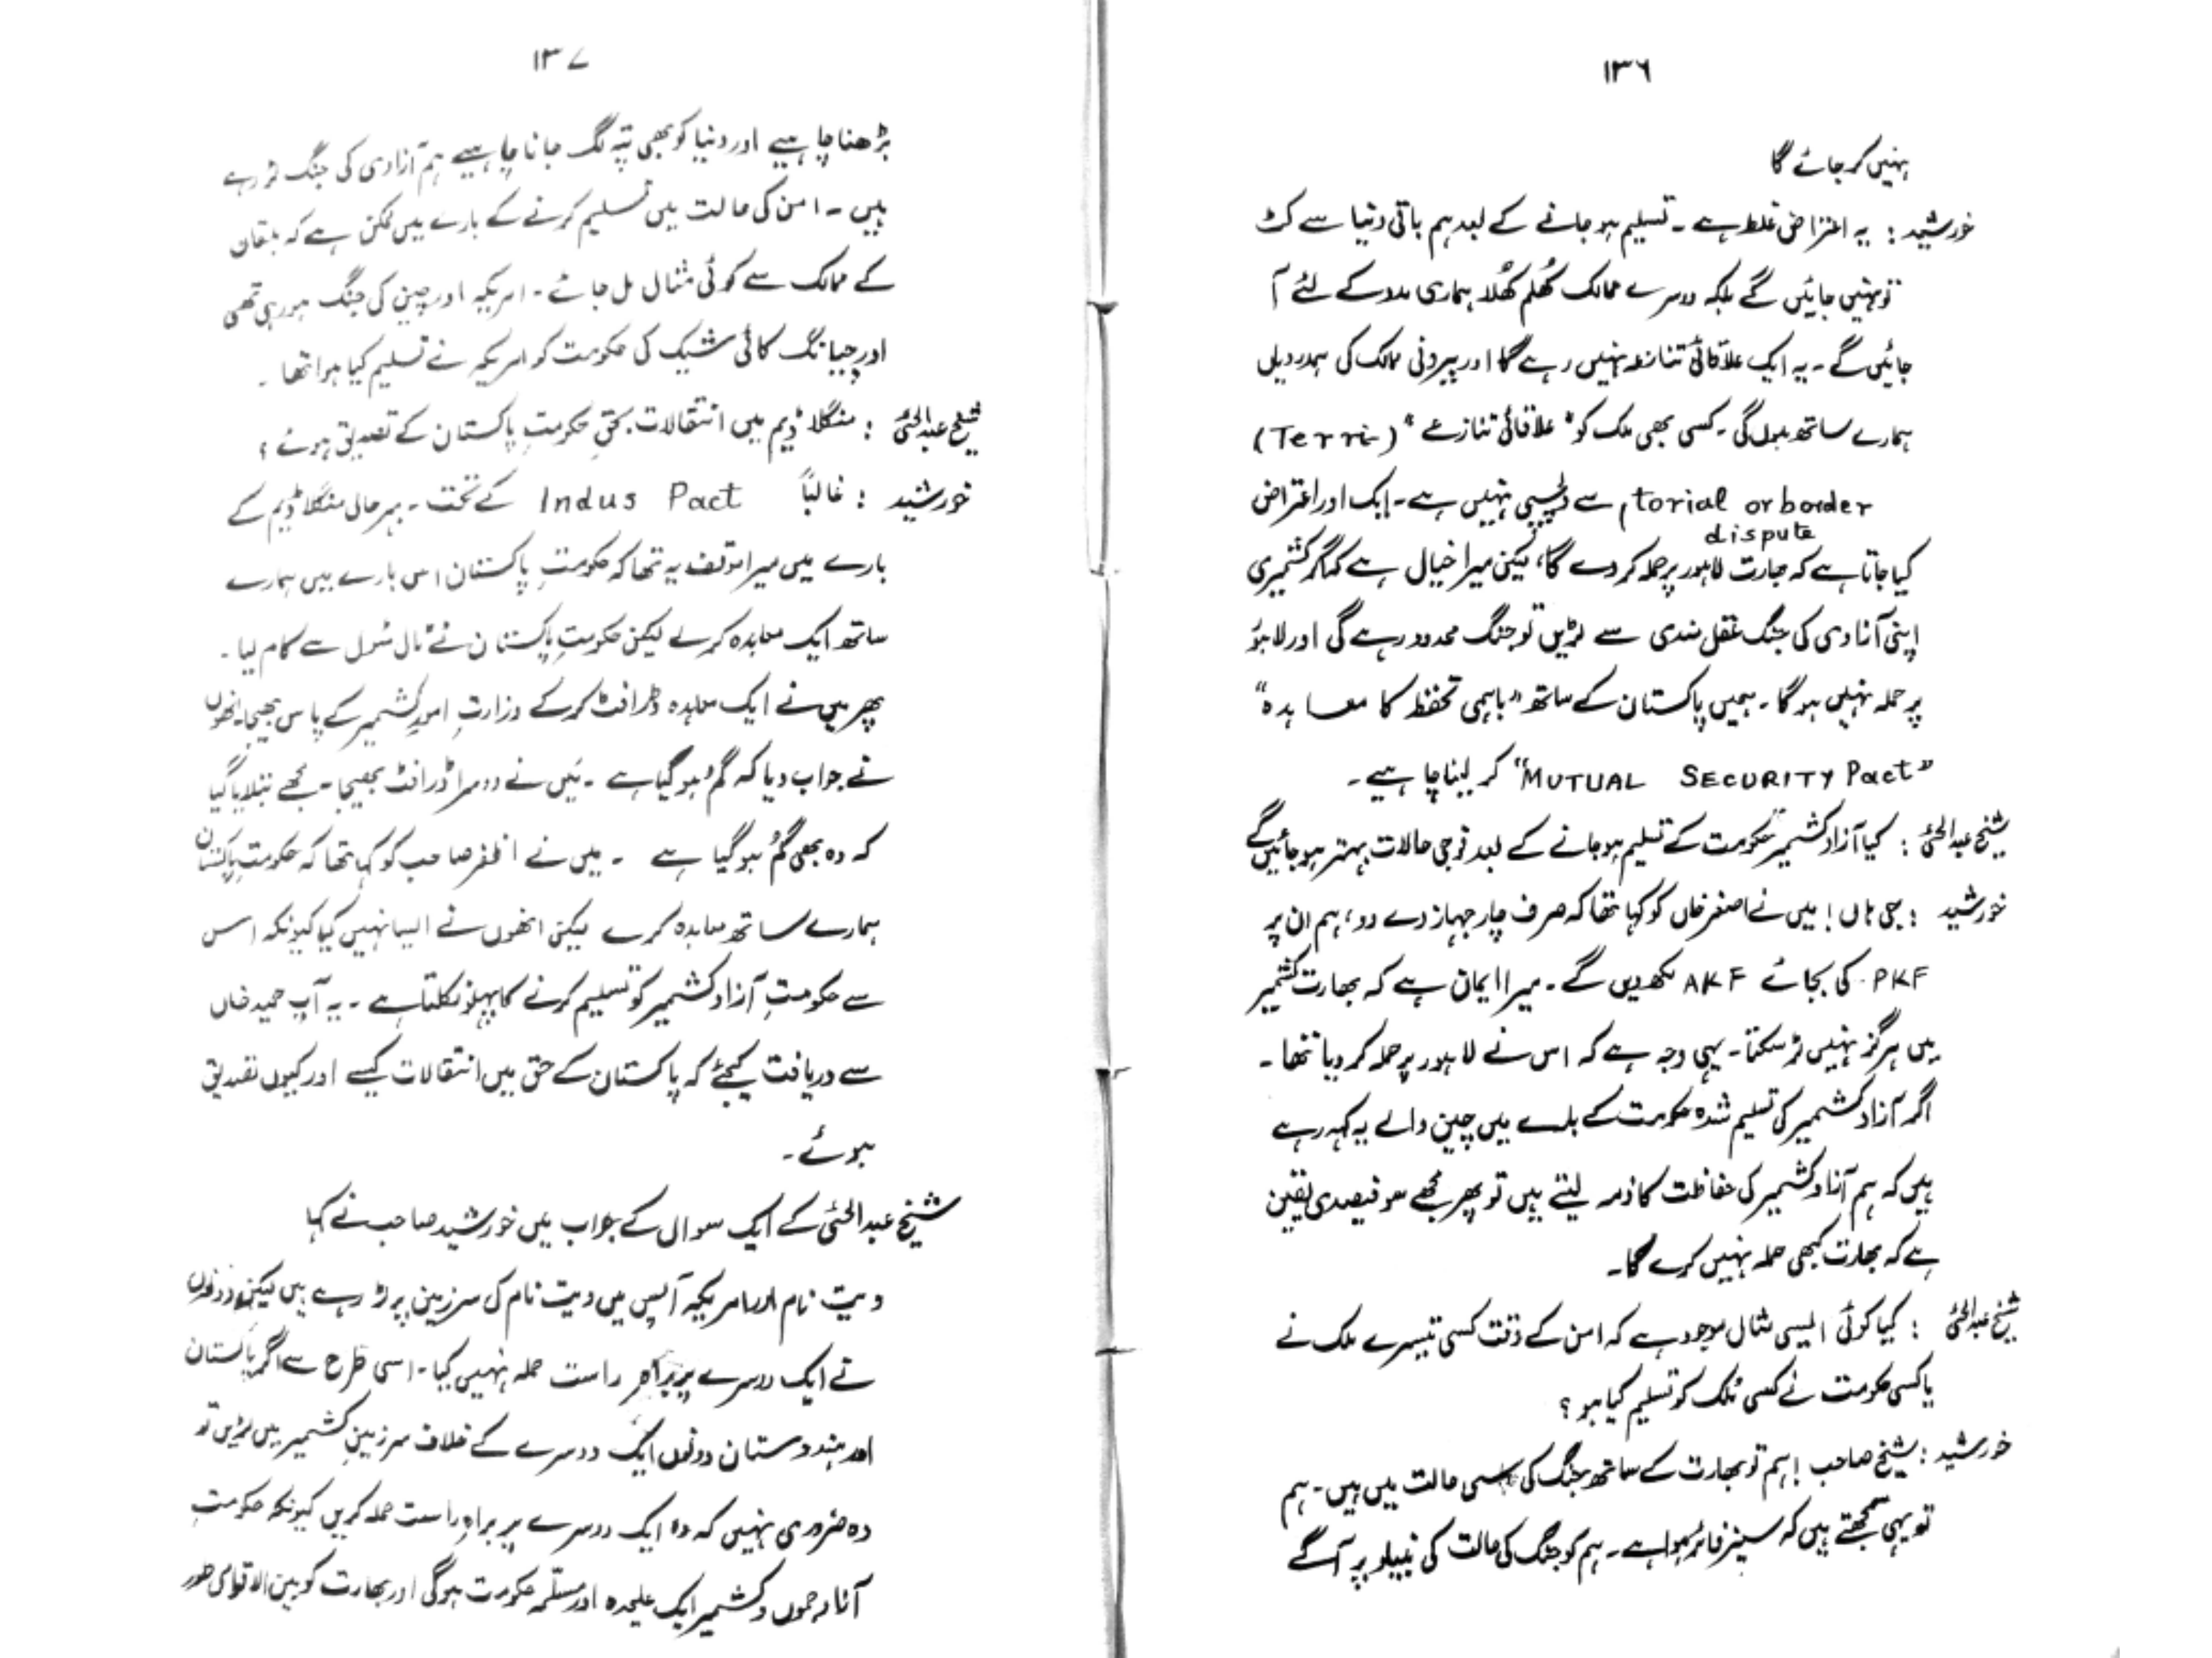 ۱۳۶
نہیں کر جائے گا
خورشید : یہ اعتراض غلط ہے ۔ تسلیم ہو جانے کے بعد ہم باقی دنیا سے کٹ
تو نہیں جائیں گے بلکہ دوسرے ممالک کُھلم کُھلا ہماری مدد کے لئے آ
جائیں گے ۔ یہ ایک علاقائی تنازعہ نہیں رہے گا اور بیرونی ممالک کی ہمدردیاں
ہمارے ساتھ ہوں گی ۔ کسی بھی ملک کو " علاقائی تنازعے " (Terri-
torial or border dispute) سے دلچسپی نہیں ہے ۔ ایک اور اعتراض
کیا جاتا ہے کہ بھارت لاہور پر حملہ کر دے گا، لیکن میرا خیال ہے کہ اگر کشمیری
اپنی آزادی کی جنگ عقل مندی سے لڑیں تو جنگ محدود رہے گی اور لاہور
پر حملہ نہیں ہو گا ۔ ہمیں پاکستان کے ساتھ "باہمی تحفظ کا معاہدہ"
"MUTUAL SECURITY Pact" کر لینا چاہیے ۔
شیخ عبدالحئی : کیا آزاد کشمیر حکومت کے تسلیم ہو جانے کے بعد فوجی حالات بہتر ہو جائیں گے
خورشید : جی ہاں ! میں نے اصغر خاں کو کہا تھا کہ صرف چار جہاز دے دو، ہم ان پر
PKF کی بجائے AKF لکھ دیں گے ۔ میرا ایمان ہے کہ بھارت کشمیر
میں ہرگز نہیں لڑ سکتا ۔ یہی وجہ ہے کہ اس نے لاہور پر حملہ کر دیا تھا ۔
اگر آزاد کشمیر کی تسلیم شدہ حکومت کے بارے میں چین والے یہ کہہ رہے
ہیں کہ ہم آزاد کشمیر کی حفاظت کا ذمہ لیتے ہیں تو پھر مجھے سو فیصدی یقین
ہے کہ بھارت کبھی حملہ نہیں کرے گا ۔
شیخ عبدالحئی : کیا کوئی ایسی مثال موجود ہے کہ امن کے وقت کسی تیسرے ملک نے
یا کسی حکومت نے کسی مُلک کو تسلیم کیا ہو ؟
خورشید : شیخ صاحب ! ہم تو بھارت کے ساتھ جنگ کی سی حالت میں ہیں ۔ ہم
تو یہی سمجھتے ہیں کہ سیز فائر ہوا ہے ۔ ہم کو جنگ کی حالت کی بنیاد پر آگے
۱۳۷
بڑھنا چاہیے اور دنیا کو بھی پتہ لگ جانا چاہیے ہم آزادی کی جنگ لڑ رہے
ہیں ۔ امن کی حالت میں تسلیم کرنے کے بارے میں ممکن ہے کہ بلقان
کے ممالک سے کوئی مثال مل جائے ۔ امریکہ اور چین کی جنگ ہو رہی تھی
اور چیانگ کائی شیک کی حکومت کو امریکہ نے تسلیم کیا ہوا تھا ۔
شیخ عبدالحئی : منگلا ڈیم میں انتقالات بحق حکومتِ پاکستان کے تصدیق ہوئے ؟
خورشید : غالباً Indus Pact کے تحت ۔ بہر حال منگلا ڈیم کے
بارے میں میرا موقف یہ تھا کہ حکومتِ پاکستان اس بارے میں ہمارے
ساتھ ایک معاہدہ کر لے لیکن حکومتِ پاکستان نے ٹال مٹول سے کام لیا ۔
پھر میں نے ایک معاہدہ ڈرافٹ کر کے وزارتِ امورِ کشمیر کے پاس بھیجا۔ انھوں
نے جواب دیا کہ گُم ہو گیا ہے ۔ میں نے دوسرا ڈرافٹ بھیجا ۔ مجھے بتلایا گیا
کہ وہ بھی گُم ہو گیا ہے ۔ میں نے اظفر صاحب کو کہا تھا کہ حکومتِ پاکستان
ہمارے ساتھ معاہدہ کرے لیکن انھوں نے ایسا نہیں کیا کیونکہ اس
سے حکومتِ آزاد کشمیر کو تسلیم کرنے کا پہلو نکلتا ہے ۔ یہ آپ حمید خاں
سے دریافت کیجئے کہ پاکستان کے حق میں انتقالات کیسے اور کیوں تصدیق
ہوئے ۔
شیخ عبدالحئی کے ایک سوال کے جواب میں خورشید صاحب نے کہا
ویت نام اور امریکہ آپس میں ویت نام کی سرزمین پر لڑ رہے ہیں لیکن دونوں
نے ایک دوسرے پر براہِ راست حملہ نہیں کیا ۔ اسی طرح سے اگر پاکستان
اور ہندوستان دونوں ایک دوسرے کے خلاف سرزمینِ کشمیر میں لڑیں تو
وہ ضروری نہیں کہ وہ ایک دوسرے پر براہِ راست حملہ کریں کیونکہ حکومتِ
آزاد جموں و کشمیر ایک علیحدہ اور مسلّمہ حکومت ہو گی اور بھارت کو بین الاقوامی طور